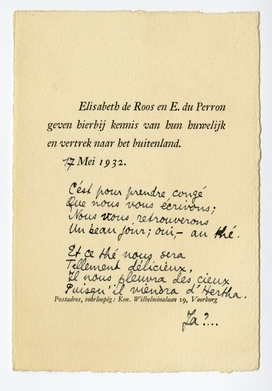 Elisabeth de Roos en E. du Perron
geven hierbij kennis van hun huwelijk
en vertrek naar het buitenland.
17 Mei 1932.
C'est pour prendre congé
Que nous vous écrivons;
Nous vous retrouverons
Un beau jour; oui,- au thé.
Et ce thé nous sera
Tellement délicieux,
Il nous pleuvra des cieux
Puisqu'il viendra d'Hertha.
Postadres, voorloopig: Kon. Wilhelminalaan 19, Voorburg
Ja?...